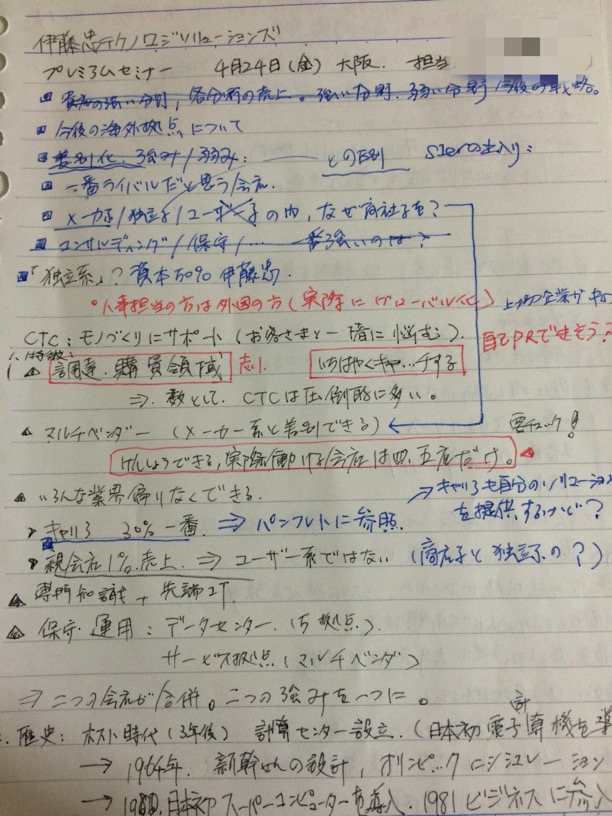 伊藤忠テクノロジソリューションズ
プレミアムセミナー 4月24日(金) 大阪. 担当
各分野の売上。強い分野. 弱い分野
今後の海外拠点について
差別化. 強み/弱み: との区別 SIerの
一番ライバルだと思う会社.
メーカー系/独立系/ユーザー系の内, なぜ商社系を?
コンサルディング/保守/… 一番強いのは?
「独立系」? 資本50% 伊藤忠.
人事担当の方は外国の方(実際にグローバル化) 上場企業が
CTC: モノづくりにサポート(お客さまと一緒に悩む). 自己PRで
1. 特徴:
調達・購買領域 いちはやくキャッチする
⇒ 数として CTCは圧倒的に多い。
マルチベンダー(メーカー系と差別できる) 要チェック!
けんしょうできる, 実際働ける会社は四、五店だけ。
いろんな業界偏りなくできる. →キャリアも自分のソリューション
キャリア 30% 一番 ⇒ パンフレットに参照 を提供するけど?
親会社1%売上 ⇒ ユーザー系ではない (商社系と独立系の?)
専門知識 + 先端IT
保守・運用: データセンター.(5拠点).
サービス拠点(マルチベンダ)
⇒ 二つの会社が合併。二つの強みを一つに。
歴史: ホスト時代(3年後) 計算センター設立.(日本初電子計算機を導
→ 1964年. 新幹せんの設計, オリンピック ニシュレーション
→ 日本初スーパーコンピューターを導入. 1981 ビジネスに参入